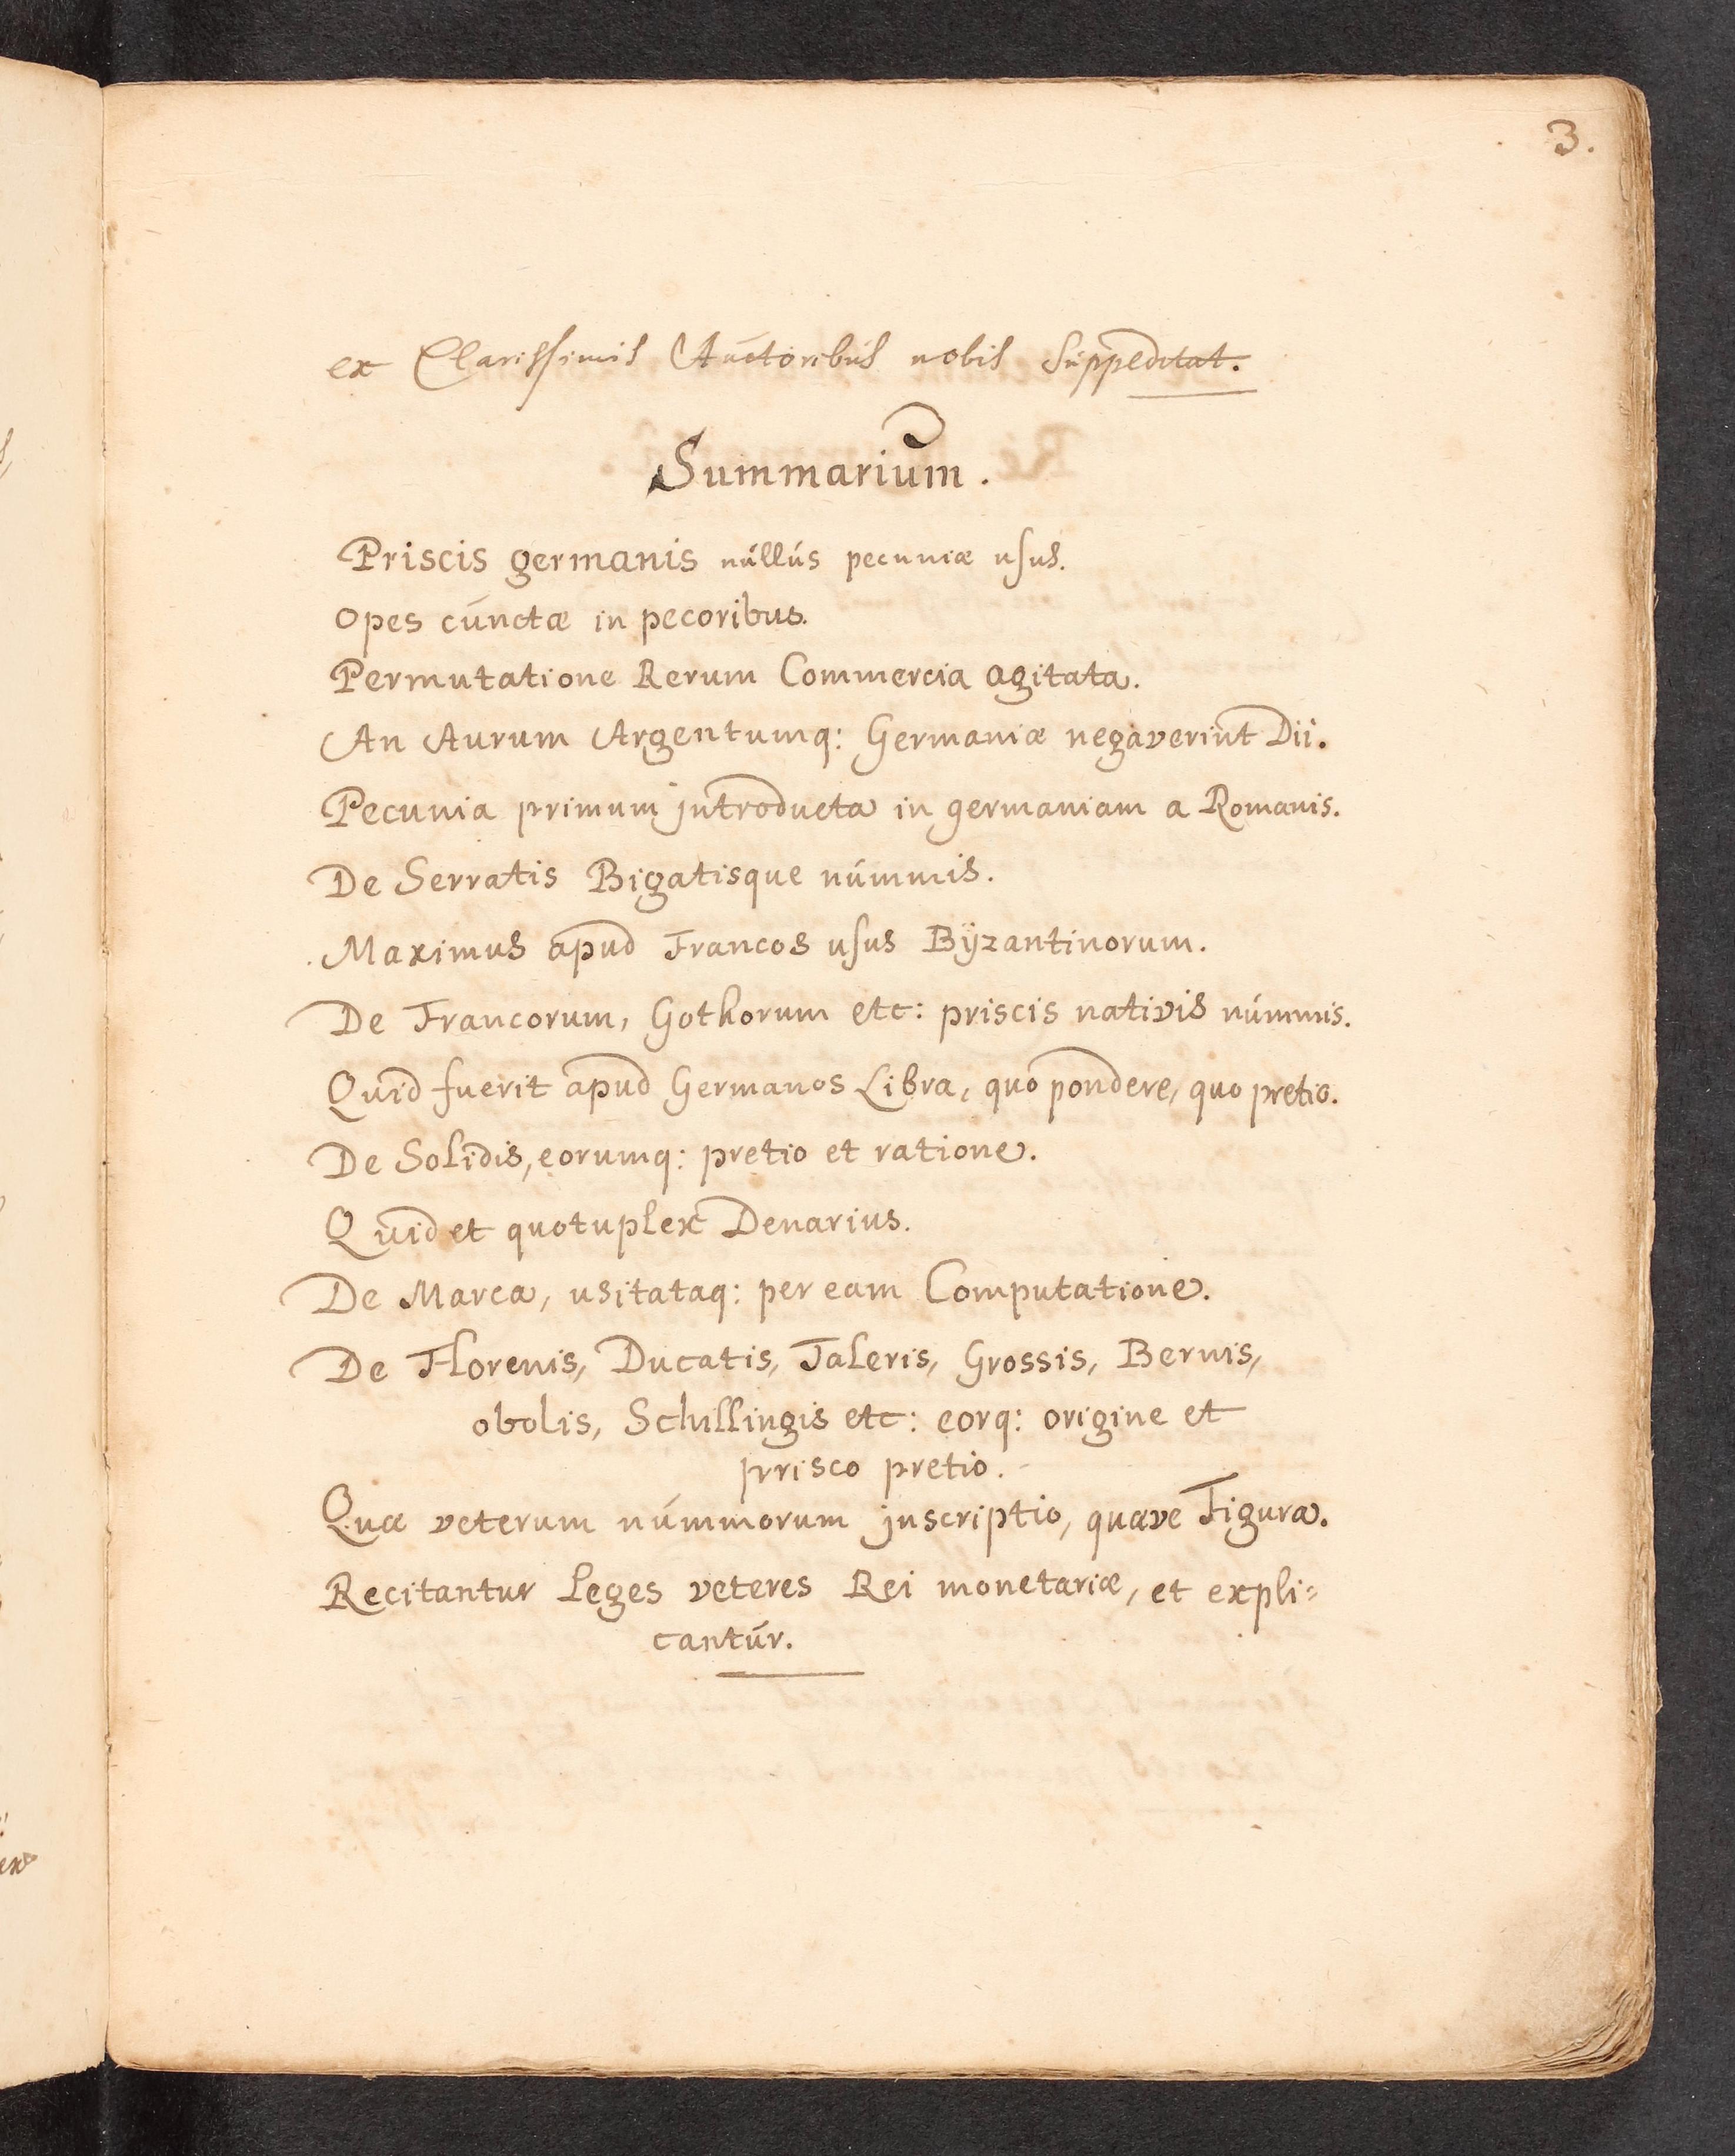 3.
ex Clarissimis Auctoribus nobis suppeditat.
Summarium.
Priscis germanis nullús pecuniæ usus.
Opes cúnctæ in pecoribus.
Permutatione Rerum Commercia agitata.
An Aurum Argentumq: Germaniæ negaverint Dii.
Pecunia primum introducta in germaniam a Romanis.
De Serratis Bigatisque númmis.
Maximus apud Francos usus Bÿzantinorum.
De Francorum, Gothorum etc: priscis nativis númmis.
Quid fuerit apud Germanos Libra, quo pondere, quo pretio.
De Solidis, eorumq: pretio et ratione.
Quid et quotuplex Denarius.
De Marca, usitataq: per eam Computatione.
De Florenis, Ducatis, Taleris, Grossis, Bernis,
obolis, Schillingis etc: eorq: origine et
prisco pretio.
Quæ veterum númmorum jnscriptio, quæve Figura.
Recitantur Leges veteres Rei monetariæ, et expli=
cantúr.